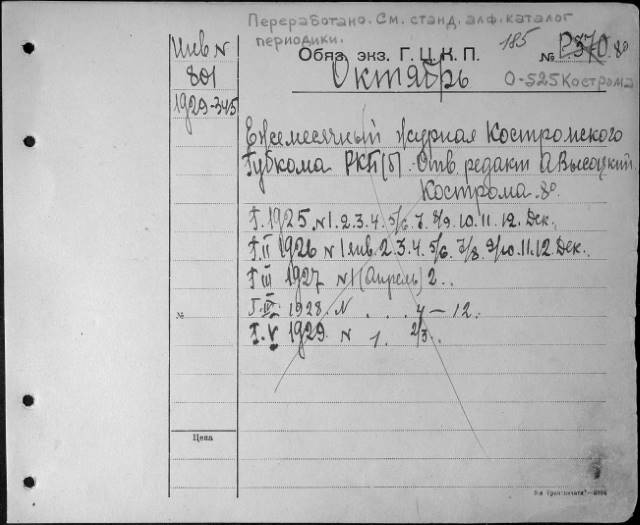 Переработано. См. станд. алф. каталог
периодики.
Инв N
801
1929-345
Обяз. экз. Г. Ц. К. П.
185
№ Р370. 8º
Октябрь
О-525 Кострома
Ежемесячный журнал Костромского
Губкома РКП(б). Отв. редакт А Высоцкий
Кострома. 8º.
Г. 1925. N 1. 2. 3. 4. 5/6. 7. 8/9. 10. 11. 12. Дек.
Г. II 1926 N 1 янв. 2. 3. 4. 5/6. 7/8. 9/10. 11. 12. Дек.
Г III 1927 N 1 (Апрель) 2. .
Г. IV. 1928. N . . . 4 – 12.
Г. V 1929. N 1. 2/3. .
№
Цена